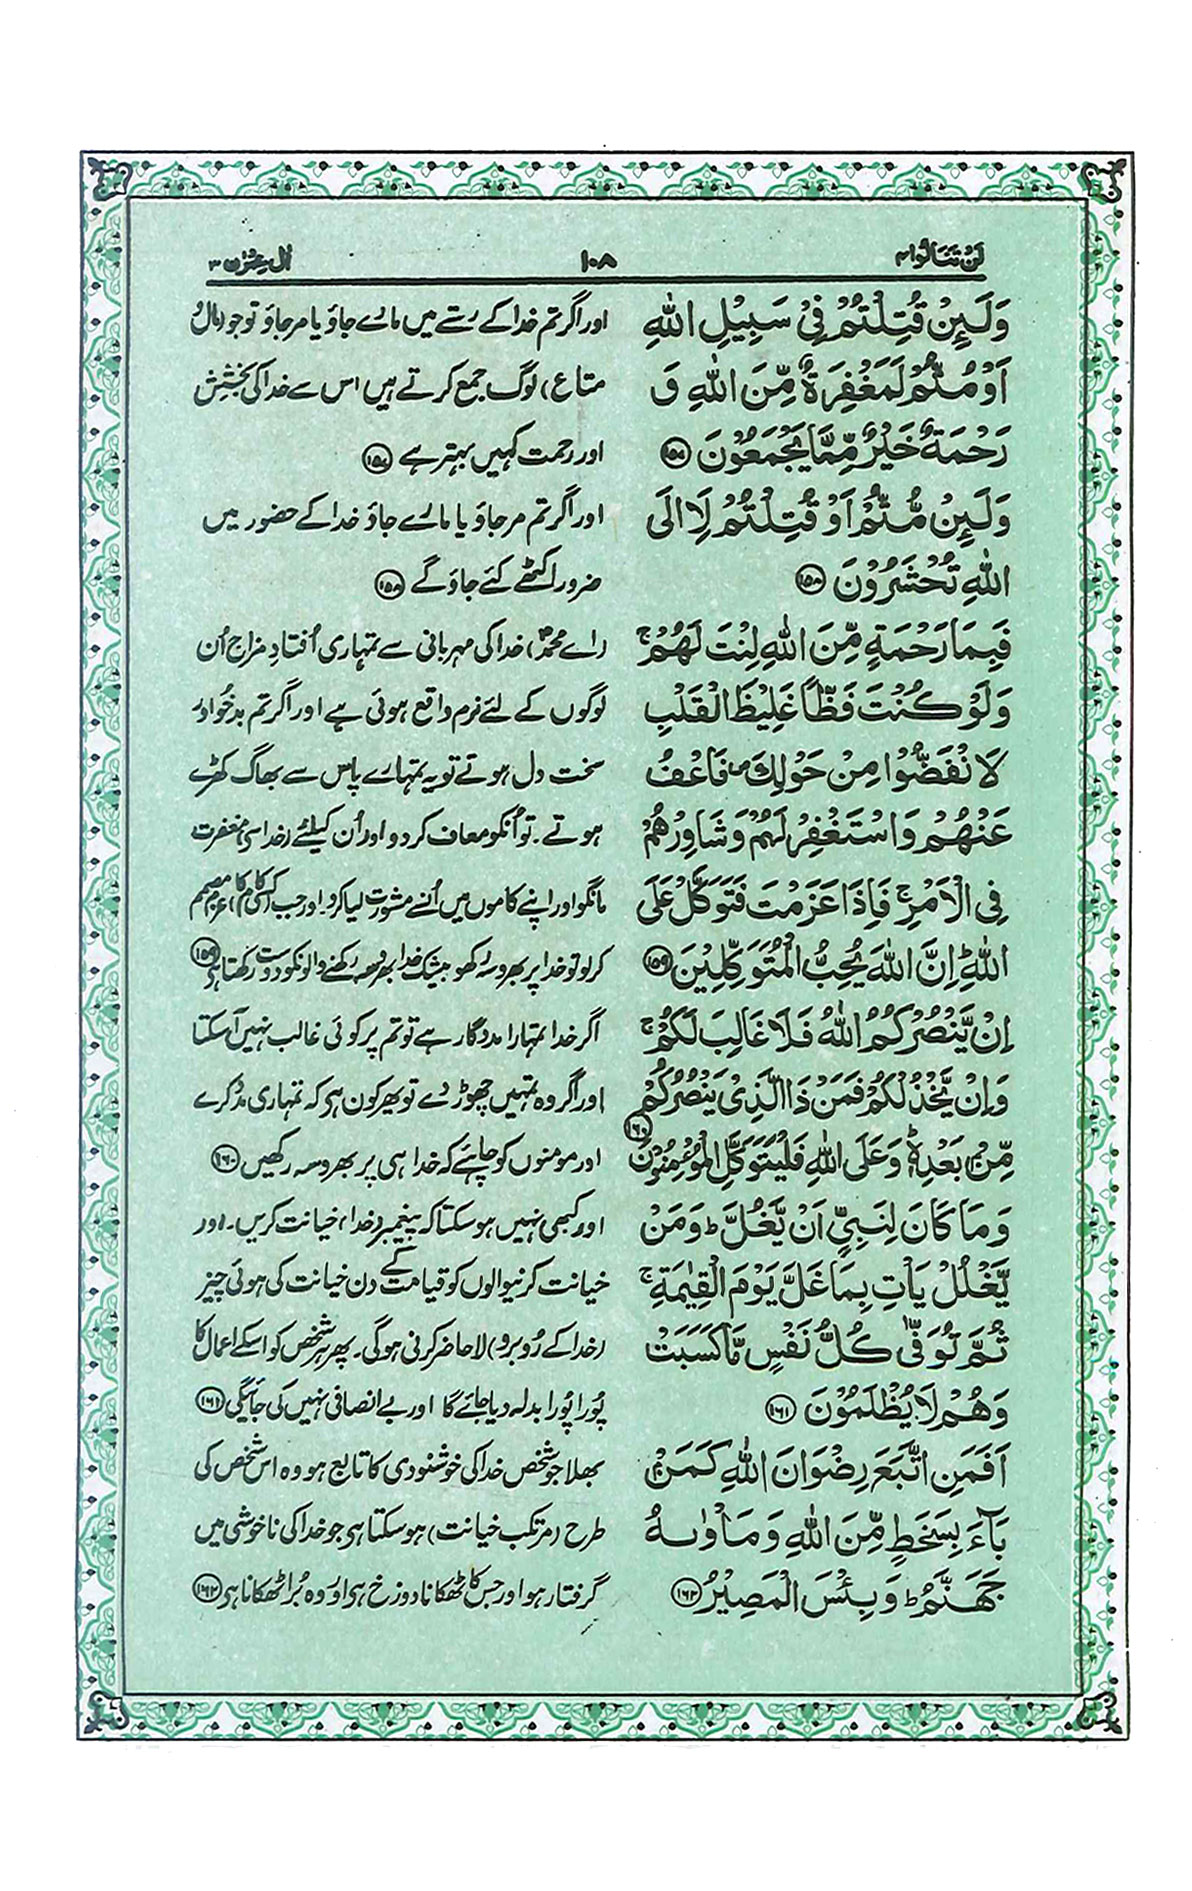 لَنْ تَنَالُوا ۴
۱۰۸
اٰل عِمْرٰن ۳
وَلَئِنْ قُتِلْتُمْ فِیْ سَبِیْلِ اللّٰهِ
اَوْ مُتُّمْ لَمَغْفِرَةٌ مِّنَ اللّٰهِ وَ
رَحْمَةٌ خَیْرٌ مِّمَّا یَجْمَعُوْنَ ۱۵۷
وَلَئِنْ مُّتُّمْ اَوْ قُتِلْتُمْ لَاِ الَی
اللّٰهِ تُحْشَرُوْنَ ۱۵۸
فَبِمَا رَحْمَةٍ مِّنَ اللّٰهِ لِنْتَ لَهُمْ ۚ
وَلَوْ كُنْتَ فَظًّا غَلِیْظَ الْقَلْبِ
لَا نْفَضُّوْا مِنْ حَوْلِكَ ۪ فَاعْفُ
عَنْهُمْ وَاسْتَغْفِرْ لَهُمْ وَشَاوِرْهُمْ
فِی الْاَمْرِ ۚ فَاِذَا عَزَمْتَ فَتَوَكَّلْ عَلَی
اللّٰهِ ؕ اِنَّ اللّٰهَ یُحِبُّ الْمُتَوَكِّلِیْنَ ۱۵۹
اِنْ یَّنْصُرْكُمُ اللّٰهُ فَلَا غَالِبَ لَكُمْ ۚ
وَاِنْ یَّخْذُلْكُمْ فَمَنْ ذَا الَّذِیْ یَنْصُرُكُمْ
مِّنْۢ بَعْدِهٖ ؕ وَعَلَی اللّٰهِ فَلْیَتَوَكَّلِ الْمُؤْمِنُوْنَ ۱۶۰
وَمَا كَانَ لِنَبِیٍّ اَنْ یَّغُلَّ ؕ وَمَنْ
یَّغْلُلْ یَاْتِ بِمَا غَلَّ یَوْمَ الْقِیٰمَةِ ۚ
ثُمَّ تُوَفّٰی كُلُّ نَفْسٍ مَّا كَسَبَتْ
وَهُمْ لَا یُظْلَمُوْنَ ۱۶۱
اَفَمَنِ اتَّبَعَ رِضْوَانَ اللّٰهِ كَمَنْۢ
بَآءَ بِسَخَطٍ مِّنَ اللّٰهِ وَمَاْوٰىهُ
جَهَنَّمُ ؕ وَبِئْسَ الْمَصِیْرُ ۱۶۲
اور اگر تم خدا کے رستے میں مارے جاؤ یا مر جاؤ تو جو (مال و
متاع) لوگ جمع کرتے ہیں اس سے خدا کی بخشش
اور رحمت کہیں بہتر ہے ۱۵۷
اور اگر تم مر جاؤ یا مارے جاؤ خدا کے حضور میں
ضرور اکٹھے کئے جاؤ گے ۱۵۸
(اے محمدؐ) خدا کی مہربانی سے تمہاری اُفتاد مزاج اُن
لوگوں کے لئے نرم واقع ہوئی ہے اور اگر تم بدخُو اور
سخت دل ہوتے تو یہ تمہارے پاس سے بھاگ کھڑے
ہوتے۔ تو اُنکو معاف کر دو اور اُن کیلئے (خدا سے) مغفرت
مانگو اور اپنے کاموں میں اُنسے مشورت لیا کرو۔ اور جب (کسی کام کا) عزم مصمم
کر لو تو خدا پر بھروسہ رکھو۔ بیشک خدا بھروسہ رکھنے والونکو دوست رکھتا ہی ۱۵۹
اگر خدا تمہارا مددگار ہے تو تم پر کوئی غالب نہیں آ سکتا
اور اگر وہ تمہیں چھوڑ دے تو پھر کون ہی کہ تمہاری مدد کرے
اور مومنوں کو چاہئے کہ خدا ہی پر بھروسہ رکھیں ۱۶۰
اور کبھی نہیں ہو سکتا کہ پیغمبر (خدا) خیانت کریں۔ اور
خیانت کرنیوالوں کو قیامت کے دن خیانت کی ہوئی چیز
(خدا کے رُوبرو) لا حاضر کرنی ہو گی۔ پھر ہر شخص کو اسکے اعمال کا
پُورا پُورا بدلہ دیا جائے گا اور بے انصافی نہیں کی جائیگی ۱۶۱
بھلا جو شخص خدا کی خوشنودی کا تابع ہو وہ اس شخص کی
طرح (مرتکب خیانت) ہو سکتا ہی جو خدا کی ناخوشی میں
گرفتار ہو اور جس کا ٹھکانا دوزخ ہی اور وہ بُرا ٹھکانا ہی ۱۶۲